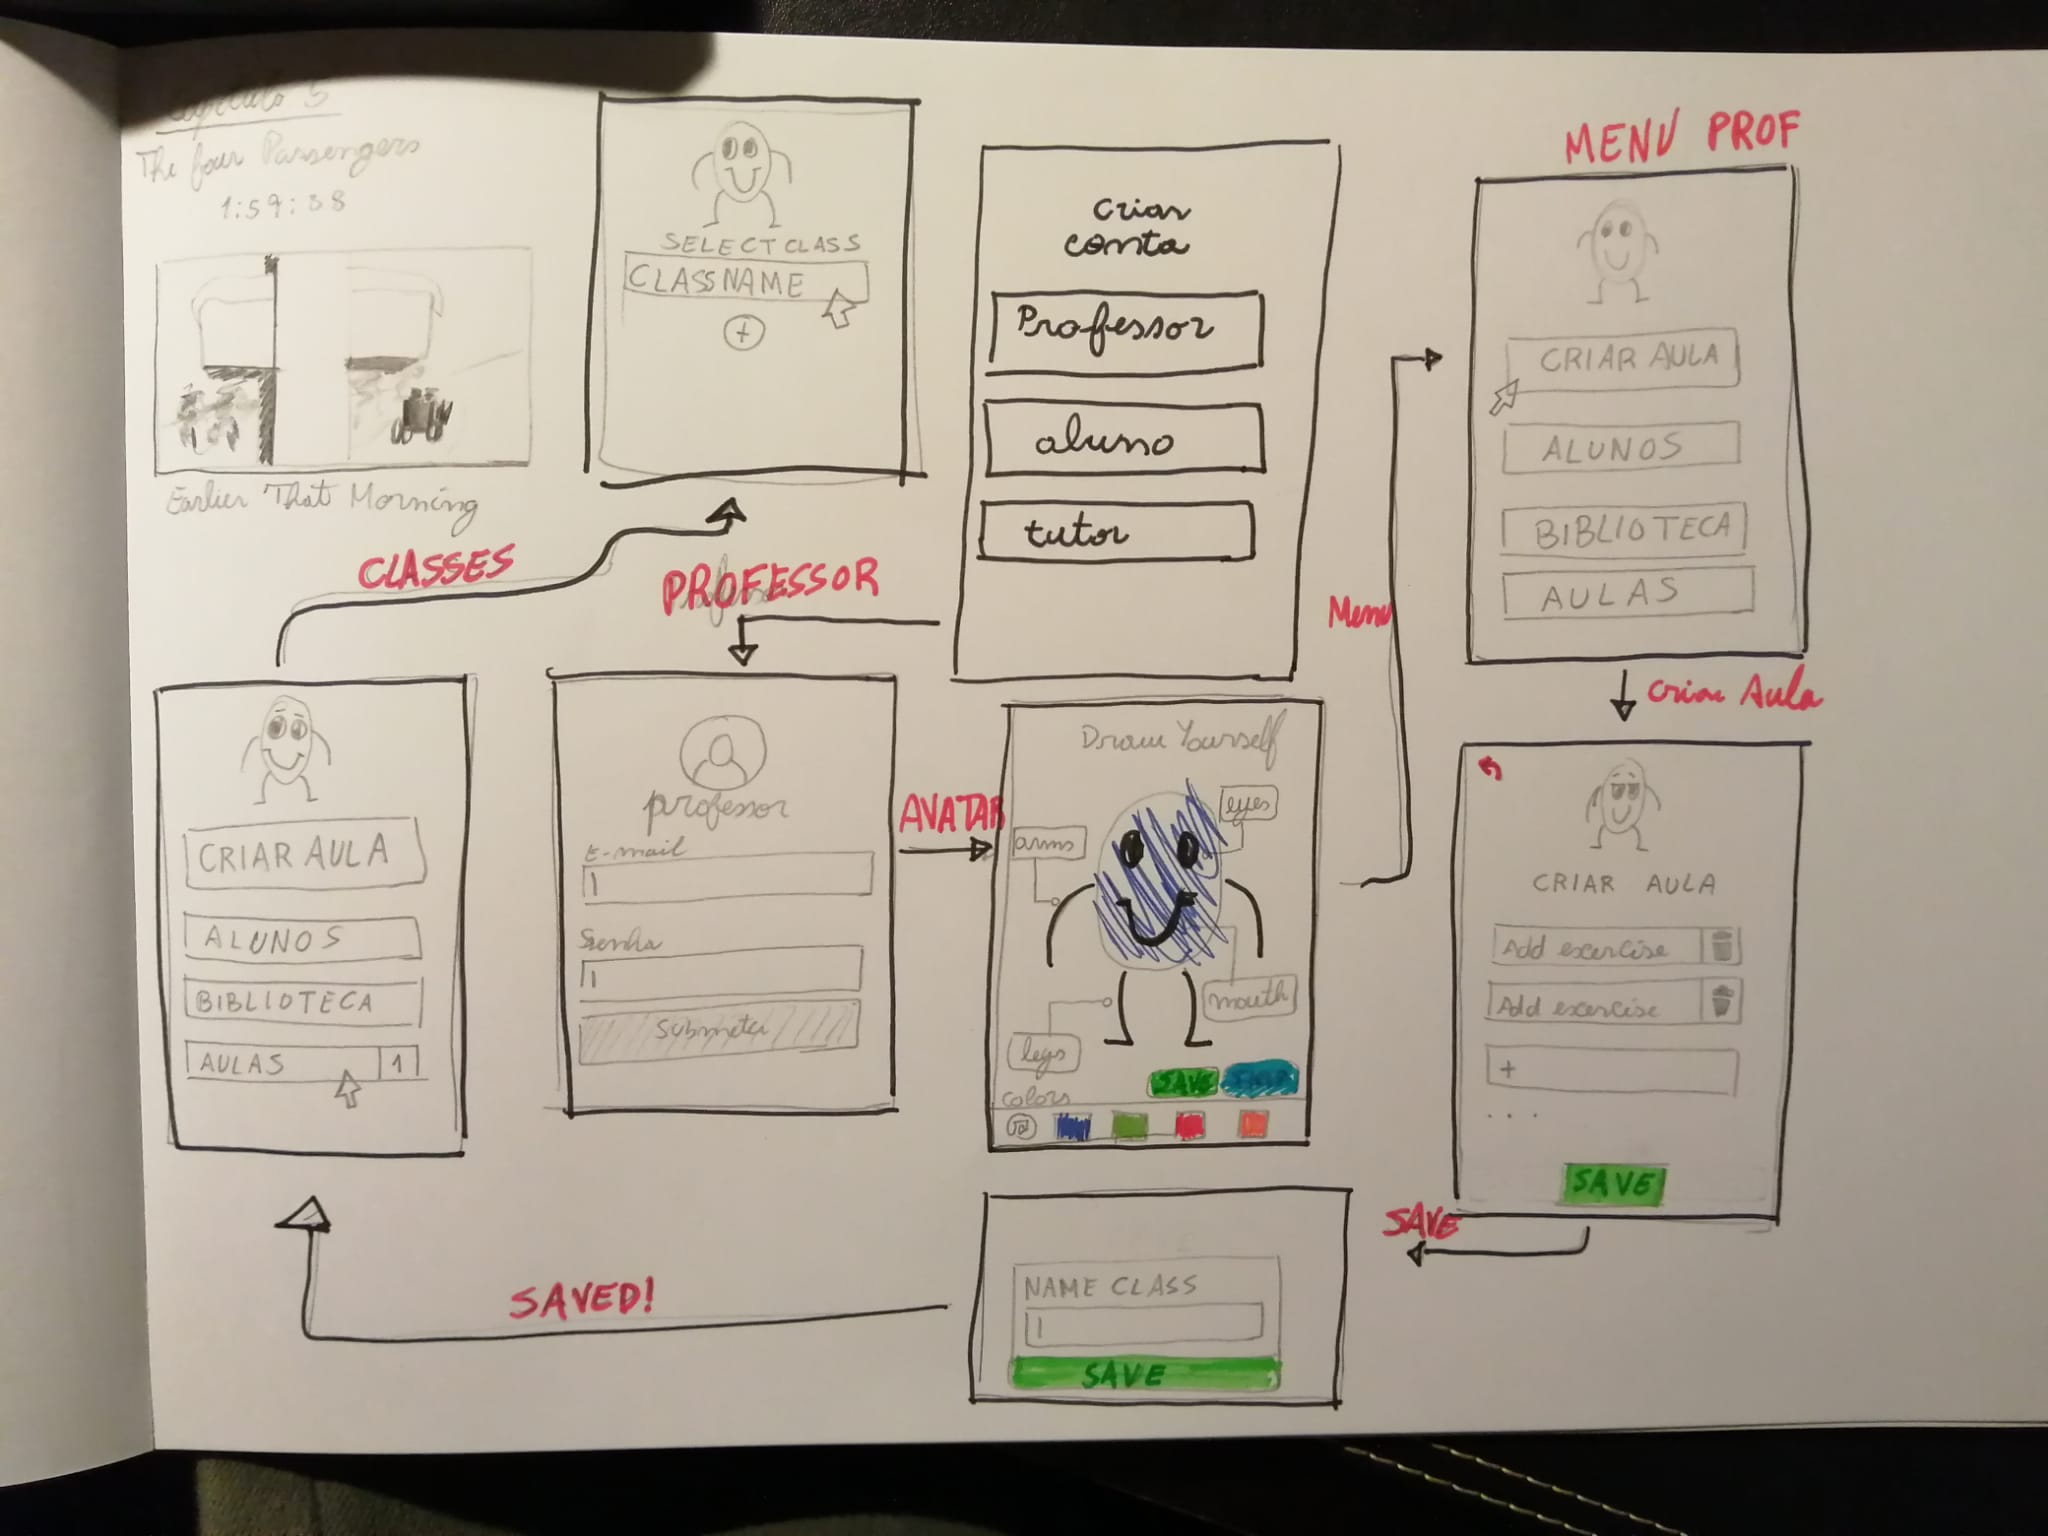 Capítulo 5
The four Passengers
1:59:38
Earlier That Morning
SELECT CLASS
CLASS NAME
+
criar
conta
Professor
aluno
tutor
MENU PROF
CRIAR AULA
ALUNOS
BIBLIOTECA
AULAS
CLASSES
PROFESSOR
Menu
Criar Aula
CRIAR AULA
ALUNOS
BIBLIOTECA
AULAS 1
professor
E-mail
Senha
Submeter
AVATAR
Draw Yourself
eyes
arms
mouth
legs
SAVE
colors
CRIAR AULA
Add exercise
Add exercise
+
...
SAVE
SAVE
NAME CLASS
SAVE
SAVED!